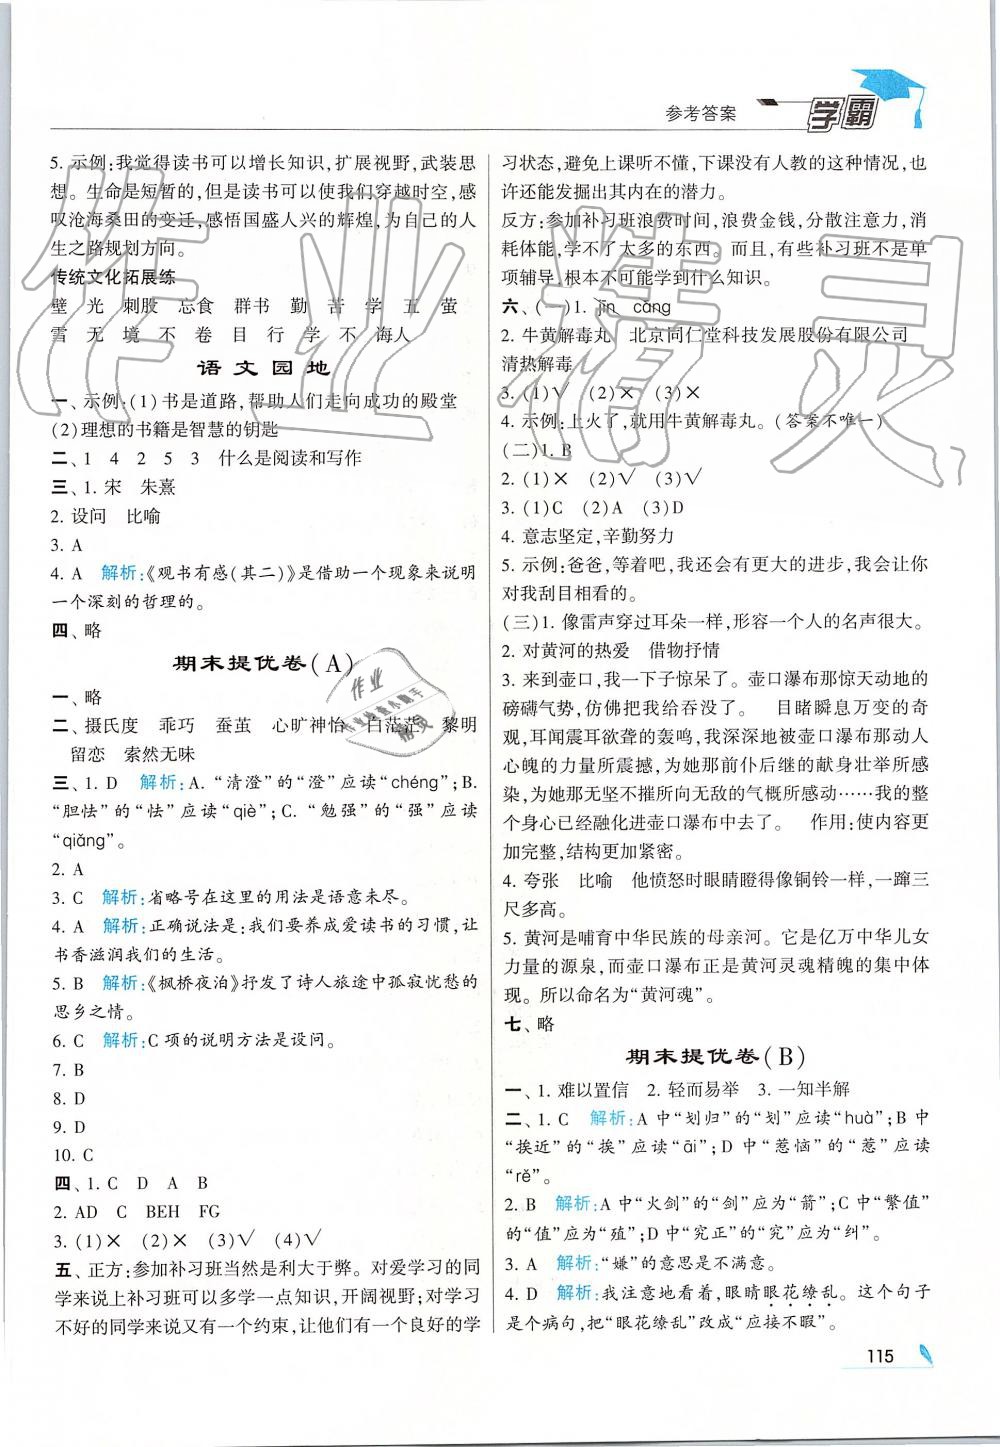 参考答案
学霸
5. 示例:我觉得读书可以增长知识,扩展视野,武装思
想。生命是短暂的,但是读书使我们穿越时空,感
叹沧海桑田的变迁,感悟国盛人兴的辉煌,为自己的人
生之路规划方向。
传统文化拓展练
壁 光 刺股 忘食 群书 勤 苦 学 五 萤
雪 无 境 不 卷 目 行 学 不 诲人
语文园地
一、示例:(1)书是道路,帮助人们走向成功的殿堂
(2)理想的书籍是智慧的钥匙
二、1 4 2 5 3 什么是阅读和写作
三、1. 宋 朱熹
2. 设问 比喻
3. A
4. A 解析:《观书有感(其二)》是借助一个现象来说明
一个深刻的哲理的。
四、略
期末提优卷(A)
一、略
二、摄氏度 乖巧 蚕茧 心旷神怡 白茫茫 黎明
留恋 索然无味
三、1. D 解析:A. “清澄”的“澄”应读“chéng”;B.
“胆怯”的“怯”应读“qiè”;C. “勉强”的“强”应读
“qiǎng”。
2. A
3. C 解析:省略号在这里的用法是语意未尽。
4. A 解析:正确说法是:我们要养成爱读书的习惯,让
书香滋润我们的生活。
5. B 解析:《枫桥夜泊》抒发了诗人旅途中孤寂忧愁的
思乡之情。
6. C 解析:C 项的说明方法是设问。
7. B
8. D
9. D
10. C
四、1. C D A B
2. AD C BEH FG
3. (1)× (2)× (3)√ (4)√
五、正方:参加补习班当然是利大于弊。对爱学习的同
学来说上补习班可以多学一点知识,开阔视野;对学习
不好的同学来说又有一个约束,让他们有一个良好的学
习状态,避免上课听不懂,下课没有人教的这种情况,也
许还能发掘出其内在的潜力。
反方:参加补习班浪费时间,浪费金钱,分散注意力,消
耗体能,学不了太多的东西。而且,有些补习班不是单
项辅导,根本不可能学到什么知识。
六、(一)1. jīn cāng
2. 牛黄解毒丸 北京同仁堂科技发展股份有限公司
清热解毒
3. (1)√ (2)× (3)×
4. 示例:上火了,就用牛黄解毒丸。(答案不唯一)
(二)1. B
2. (1)× (2)√ (3)√
3. (1)C (2)A (3)D
4. 意志坚定,辛勤努力
5. 示例:爸爸,等着吧,我还会有更大的进步,我会让你
对我刮目相看的。
(三)1. 像雷声穿过耳朵一样,形容一个人的名声很大。
2. 对黄河的热爱 借物抒情
3. 来到壶口,我一下子惊呆了。壶口瀑布那惊天动地的
磅礴气势,仿佛把我给吞没了。 目睹瞬息万变的奇
观,耳闻震耳欲聋的轰鸣,我深深地被壶口瀑布那动人
心魄的力量所震撼,为她那前仆后继的献身壮举所感
染,为她那无坚不摧所向无敌的气概所感动……我的
整个身心已经融化进壶口瀑布中去了。 作用:使内容更
加完整,结构更加紧密。
4. 夸张 比喻 他愤怒时眼睛瞪得像铜铃一样,一蹿三
尺多高。
5. 黄河是哺育中华民族的母亲河。它是亿万中华儿女
力量的源泉,而壶口瀑布正是黄河灵魂精魄的集中体
现。所以命名为“黄河魂”。
七、略
期末提优卷(B)
一、1. 难以置信 2. 轻而易举 3. 一知半解
二、1. C 解析:A 中“划归”的“划”应读“huà”;B 中
“挨近”的“挨”应读“āi”;D 中“惹恼”的“惹”应读
“rě”。
2. B 解析:A 中“火剑”的“剑”应为“箭”;C 中“繁值”
的“值”应为“殖”;D 中“究正”的“究”应为“纠”。
3. A 解析:“嫌”的意思是不满意。
4. D 解析:我注意地看着,眼睛眼花缭乱。这个句子
是个病句,把“眼花缭乱”改成“应接不暇”。
115
作业精灵
作业
作业检查小助手
精灵